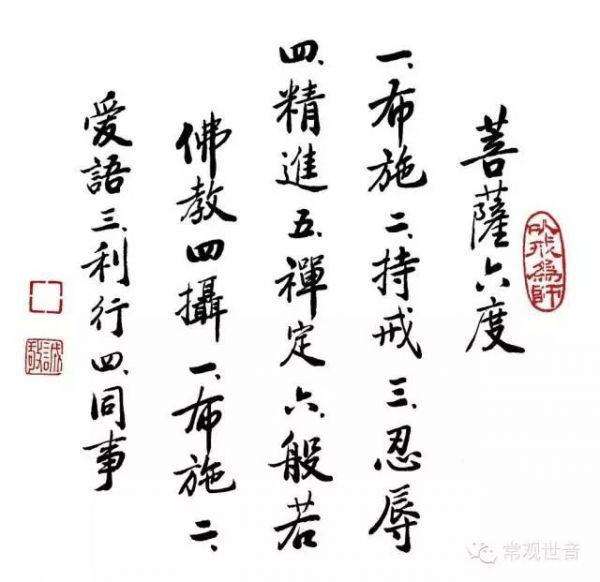 菩薩六度
一、布施二、持戒三、忍辱
四、精進五、禪定六、般若
佛教四攝一、布施二、
愛語三、利行四、同事
以戒為師
誠敬
常观世音